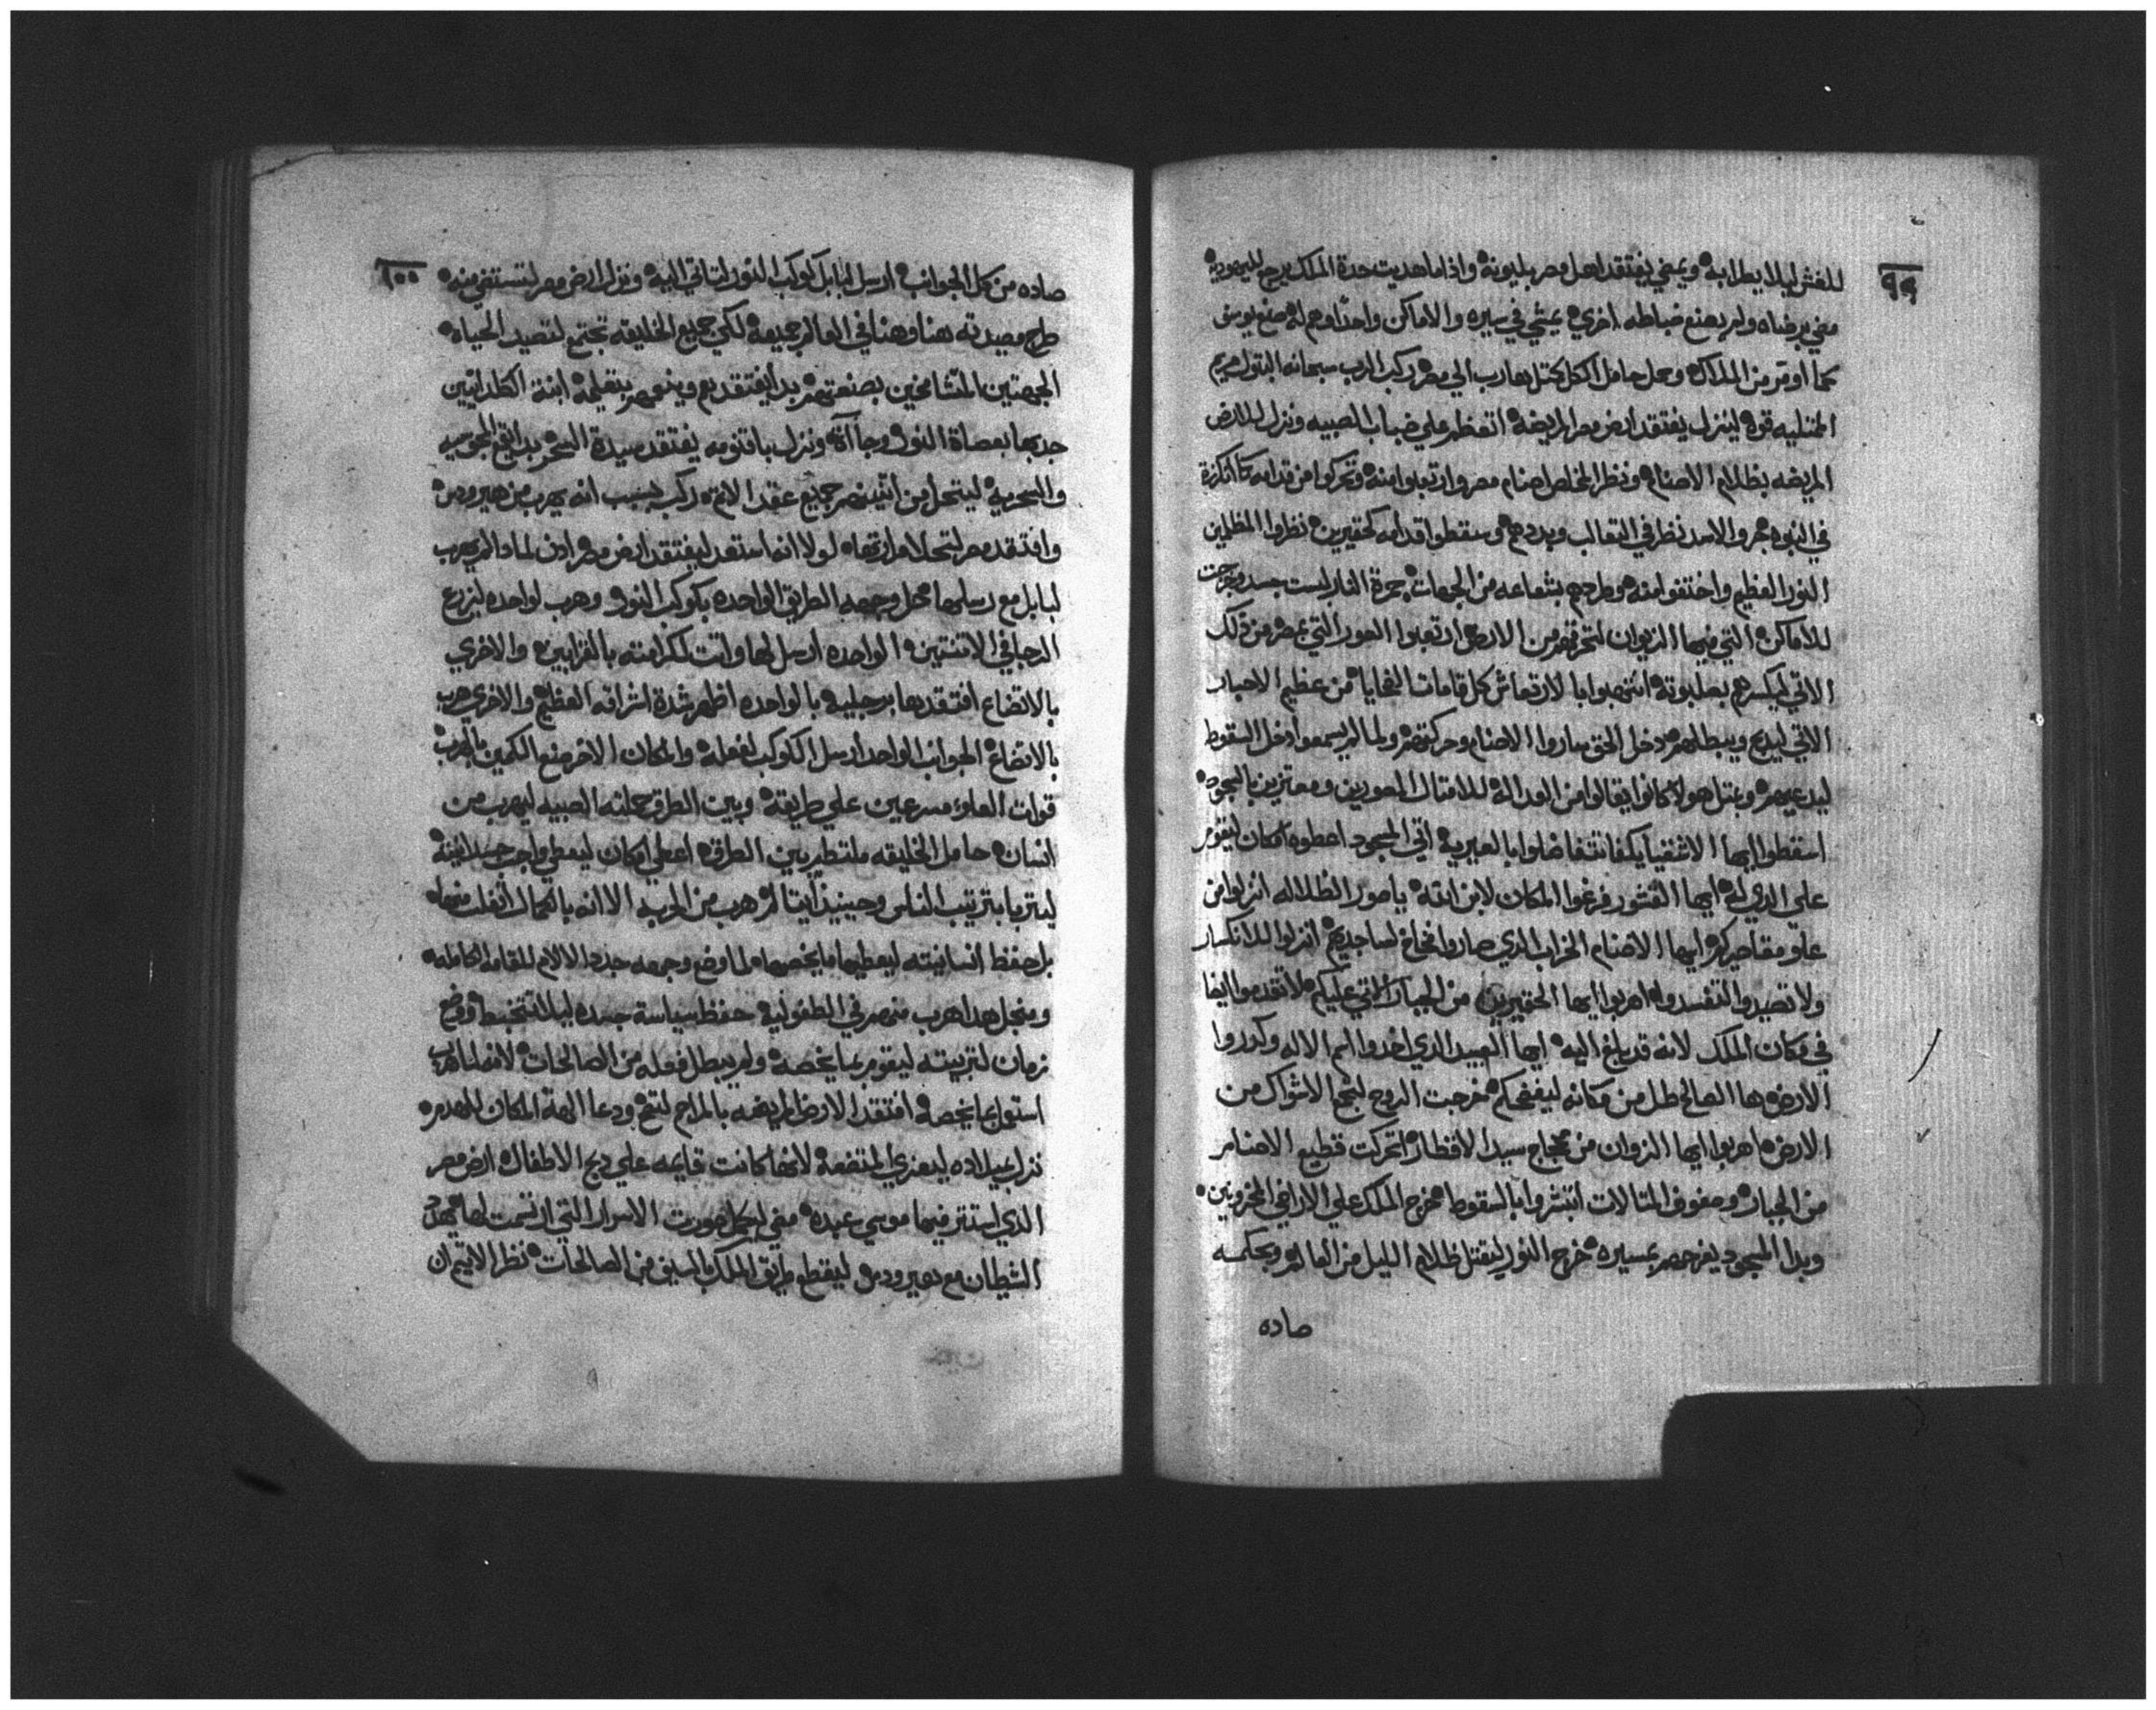 ٩٩
للغش ليلا يطرا به ويمضي يفتقد اهل مصر بليونه واذا ما هديت حدة الملك يرجع لليهوديه
مضي برضاه ولم يصنع ضباطه اخري يمشي في سيره والاماكن واحدا وهم له صنع يوسف
كما اومر من الملاك وحمل حامل الكل كمتل هارب الي مصر ركب الرب سبحانه البتول مريم
الممتليه قوه لينزل يفتقد ارض مصر المريضه اتعظم علي ضباب الصبيه ونزل للارض
المريضه بظلام الاصنام ونظر المخلص اصنام مصر وارتعبوا منه وتحركوا من قدامه كما انكرزة
في النبوه جرو الاسد نظر في التعالب وبددهم وسقطوا قدامه كحقيرين نظروا المظلمين
النور العظيم واختفوا منه وطردهم بشعاعه من الجهات جمرة النار لبست جسد وخرجت
للاماكن التي فيها الزيوان لتحرقهم من الارض ارتعبوا الصور التي بمصر من ذلك
الاتي ليكسرهم بصلبوته انتهبوا بالارتعاش كل قامات النحايا من عظيم الاحبار
الاتي ليدبح ويبطلهم دخل الحق ساروا الاصنام وحركتهم ولما لم يسمعوا دخل السقوط
ليدعيهم وبمتل هولا كانوا يقالوا من العداله للامتال المصورين ومعتزين بالسجود
اسقطوا ايها الاشقيا يكفا تتفاضلوا بالعبريه اتي المسجود اعطوه امكان ليقوم
علي الدي له ايها القتور فرغوا المكان لابن الله يا صور الظلاله انزلوا من
علو مقاصيركم ايها الاصنام الخراب الدي صاروا فخاخ لساجديهم انزلوا للانكسار
ولا تصيدوا لتفسدوا اهربوا ايها الحقيرين من الجبار الاتي عليكم لا تقدموا ايضا
في مكان الملك لانه قد بلغ اليه ايها العبيد الدي اخدوا اسم الاله وكدروا
الارض ها الصالح طل من مكانه ليفضحكم خرجت الروح لتجمع الاشواك من
الارض اهربوا ايها الزوان من عجاج سيد الاقطار اتحركت قطيع الاصنام
من الجبار وصفوف المتالات انتشروا بالسقوط خرج الملك علي الاراضي المخروبين
وبدا المسجود يفرحهم بمسيره خرج النور ليقتل ظلام الليل من العالم وبحكمه
صاده
١٠٠
صاده من كل الجوانب ارسل لبابل كوكب النور لتاتي اليه ونزل ارض مصر لتستشفي منه
طرح مصيدته هنا وهنا في العالم جميعه لكي جميع الخليقه تجتمع لتصيد الحياه
الجهتين المتشامخين بصنعتهم بدا يفتقدهم وينعمهم بتعليمه ابنة الكلدانيين
جدبها بعصاة النور وجاآة ونزل باقنومه يفتقد سيدة السحر بدا يتبع المجوسيه
والسحريه ليتحل من اثنينهم جميع عقد الاثم ركب بسبب انه يهرب من هيرودس
وافتقد مصر لتحلا مرارتها لولا انه استعد ليفتقد ارض مصر ادن لمادا لم يهرب
لبابل مع رسلها محل وجهه الطريق الواحده بكوكب النور وهرب لواحده ليزرع
الرجا في الاتنتين الواحده ارسل لها واتت لكرامته بالقرابين والاخري
بالاتضاع افتقدها برجليه بالواحده اظهر شدة اشراقه العظيم والاخري هرب
بالاتضاع الجوانب الواحد ارسل الكوكب لفعله والمكان الاخر صنع الكمين بالهرب
قوات العلو مسرعين علي طريقه وبين الطرق حملته الصبيه ليهرب من
انسان حامل الخليقه ملتطم بين الطرق اعطي امكان ليعطي واجب جسدانيته
ليتربا بترتيب الناس وحينيذ ايتالم هرب من الحربه الا انه بالكمال انفلت منها
بل حفظ انسانيته ليعطيها ما يخصها لما وضع وجهه جدد الالام للقامه الكامله
ومنجل هدا هرب منهم في الطفوليه حفظ سياسة جسده ليلا تتخبط ووضع
زمان لتربيته ليقوم بما يخصه ولم يبطل فعله من الصالحات لانه لما هرب
استعمل بما يخصه افتقد الارض المريضه بالمراح لتصح ودعا الهة المكان للهدم
نزل بميلاده ليعزي المتضعه لانها كانت قايمه علي دبح الاطفال ارض مصر
الدي استتر فيها موسي عبده مضي ليكمل صورت الاسرار التي ارتسمت لها بهدا
الشيطان مع هيرودس ليقطع طريق الملك بالسيف من الصالحات نظر الاتيم ان